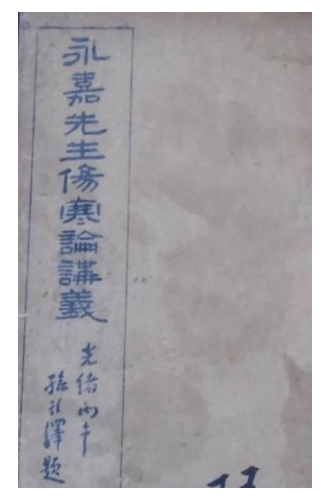 永嘉先生傷寒論講義
光緒丙午
孫詒澤題